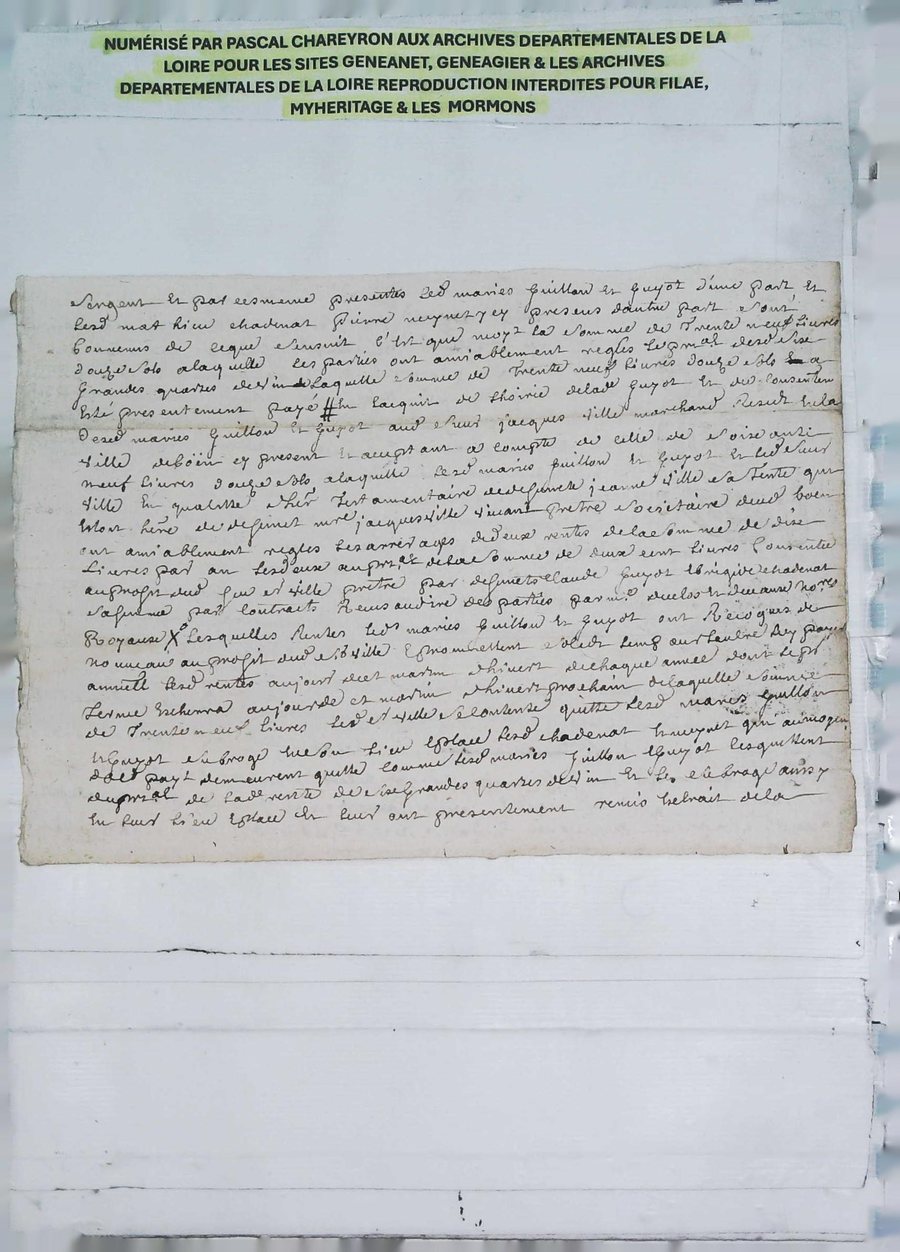 NUMÉRISÉ PAR PASCAL CHAREYRON AUX ARCHIVES DEPARTEMENTALES DE LA
LOIRE POUR LES SITES GENEANET, GENEAGIER & LES ARCHIVES
DEPARTEMENTALES DE LA LOIRE REPRODUCTION INTERDITES POUR FILAE,
MYHERITAGE & LES MORMONS
et par ces meme presentes lesd maries Guillon et Guyot d'une part et
lesd mathieu chadenat Pierre neynet y ey presens dautre part sont
Convenus de ceque sensuit C'est que moyt la somme de Trente neuf Livres
douze sols alaquelle les parties ont amiablement regles le desd sise
Grandes quartes de vin Laquelle somme de Trente neuf Livres douze sols a
Esté presentement payé # En lacquit de Lhoirie delad Guyot Et du Consentem
desd maries Guillon Et Guyot aud sieur jacques ville marchand Resid En la
ville deböen cy present Et aceptant a compte de celle de soixante
neuf Livres douze sols alaquelle lesd maries Guillon Et Guyot Et led sieur
ville En qualitté Testamentaire de deffuncte jeanne ville sa Tente qui
Estoit de deffunct mre jacques ville vivant prêtre societaire dud boen
ont amiablement regles Les arrerages de deux rentes dela somme de dise
Livres par an Lesdeux au dela somme de deux cent Livres Consentie
au profit dud feu sr ville prêtre par deffunts Claude Guyot Et brigide chadenat
sa femme par Contracts Receus par
Lesquelles Rentes lesd maries Guillon Et Guyot ont
nouveau au profit dud sr ville Et promettent
annuell lesd rentes aujour de st martin dhivert de chaque année dont le
Terme Escherra aujour de st martin dhivert prochain de laquelle somme
de Trente neuf Livres led sr ville se Contente quitte lesd maries Guillon
Et Guyot En Lieu Et place lesd chadenat Et neynet qui au moyen
dud payt demeurent quitte Comme lesd maries Guillon Et Guyot les quittent
de lad rente de sise Grandes quartes de vin Et
En leur Lieu Et place Et leur ont presentement remis Lextrait dela